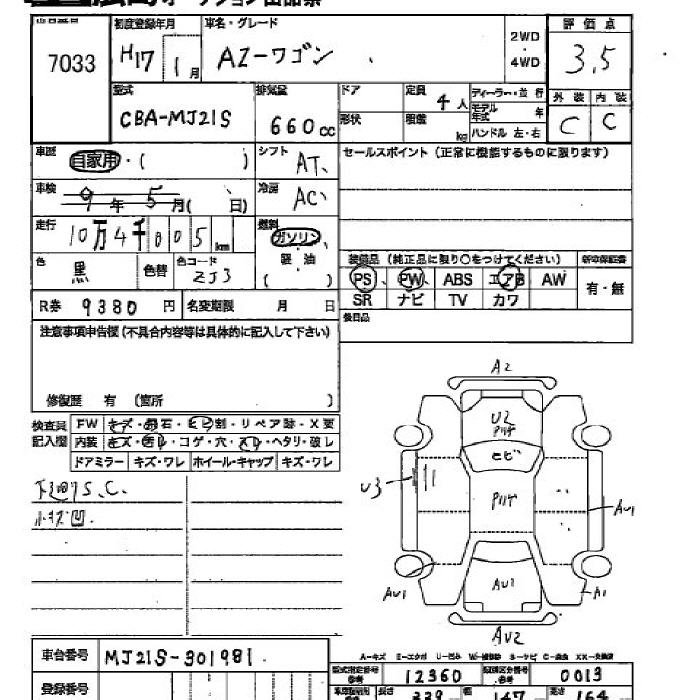 7033
初度登録年月
H17 1月
車名・グレード
AZ-ワゴン
2WD
4WD
評価点
3,5
外装 内装
C C
型式
CBA-MJ21S
排気量
660cc
ドア
形状
定員
4人
積載
kg
ディーラー・並行
モデル年式 年
ハンドル 左・右
車歴
自家用・( )
シフト
AT、
セールスポイント (正常に機能するものに限ります)
車検
9年 5月( 日)
冷房
AC、
走行
10万4千805km
燃料
ガソリン、
軽油
( )
色
黒
色替
色コード
ZJ3
装備品 (純正品に限り○をつけてください)
新車保証書
PS PW ABS エアB AW
有・無
SR ナビ TV カワ
後日品
R券 9380円
名変期限 月 日
注意事項申告欄 (不具合内容等は具体的に記入して下さい)
修復歴 有 (箇所 )
検査員記入欄
FW キズ・飛石・ヒビ割・リペア跡・X要
内装 キズ・汚れ・コゲ・穴・スレ・ヘタリ・破レ
ドアミラー キズ・ワレ ホイール・キャップ キズ・ワレ
S、C、
小キズ凹、
A2
U2
Pリケ
ヒビ
U3
Pリケ
AU1
AU2
AU1
A1
AU2
車台番号
MJ21S-301981
登録番号
A-キズ E-エクボ U-凹み W-補修跡 S-サビ C-腐食 XX-交換済
型式指定番号 参考
12360
類別区分番号 参考
0013
長さ 339 幅 147 高さ 164